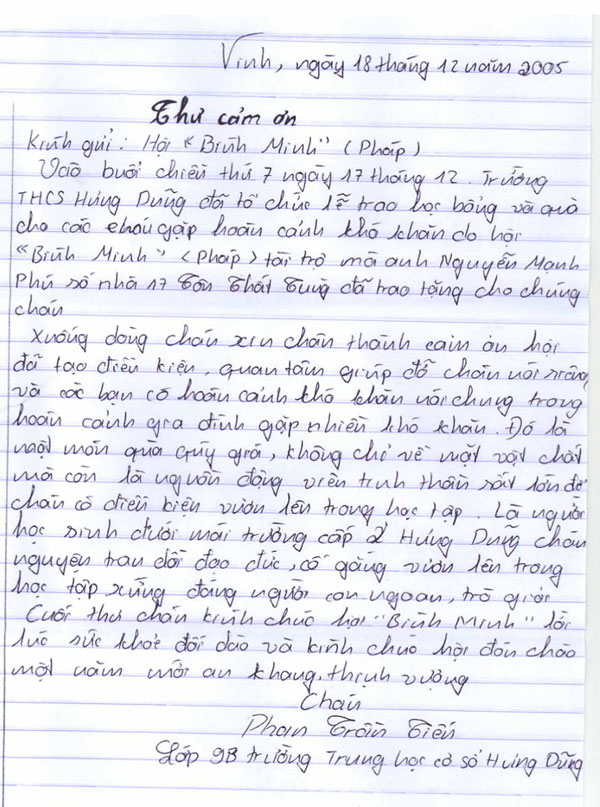 Vinh, ngày 18 tháng 12 năm 2005
Thư cảm ơn
Kính gửi: Hội "Bình Minh" (Pháp)
Vào buổi chiều thứ 7 ngày 17 tháng 12. Trường
THCS Hưng Dũng đã tổ chức lễ trao học bổng và quà
cho các cháu gặp hoàn cảnh khó khăn do hội
"Bình Minh" (Pháp) tài trợ mà anh Nguyễn Mạnh
Phú số nhà 17 Tôn Thất Tùng đã trao tặng cho chúng
cháu
Xuống dòng cháu xin chân thành cảm ơn hội
đã tạo điều kiện, quan tâm giúp đỡ cháu nói riêng
và các bạn có hoàn cảnh khó khăn nói chung trong
hoàn cảnh gia đình gặp nhiều khó khăn. Đó là
một món quà quý giá, không chỉ về mặt vật chất
mà còn là nguồn động viên tinh thần rất lớn để
cháu có điều kiện vươn lên trong học tập. Là người
học sinh dưới mái trường cấp 2 Hưng Dũng cháu
nguyện trau dồi đạo đức, cố gắng vươn lên trong
học tập xứng đáng người con ngoan, trò giỏi
Cuối thư cháu kính chúc hội "Bình Minh" lời
chúc sức khoẻ dồi dào và kính chúc hội đón chào
một năm mới an khang, thịnh vượng
Cháu
Phan Trần Tiến
Lớp 9B trường Trung học cơ sở Hưng Dũng